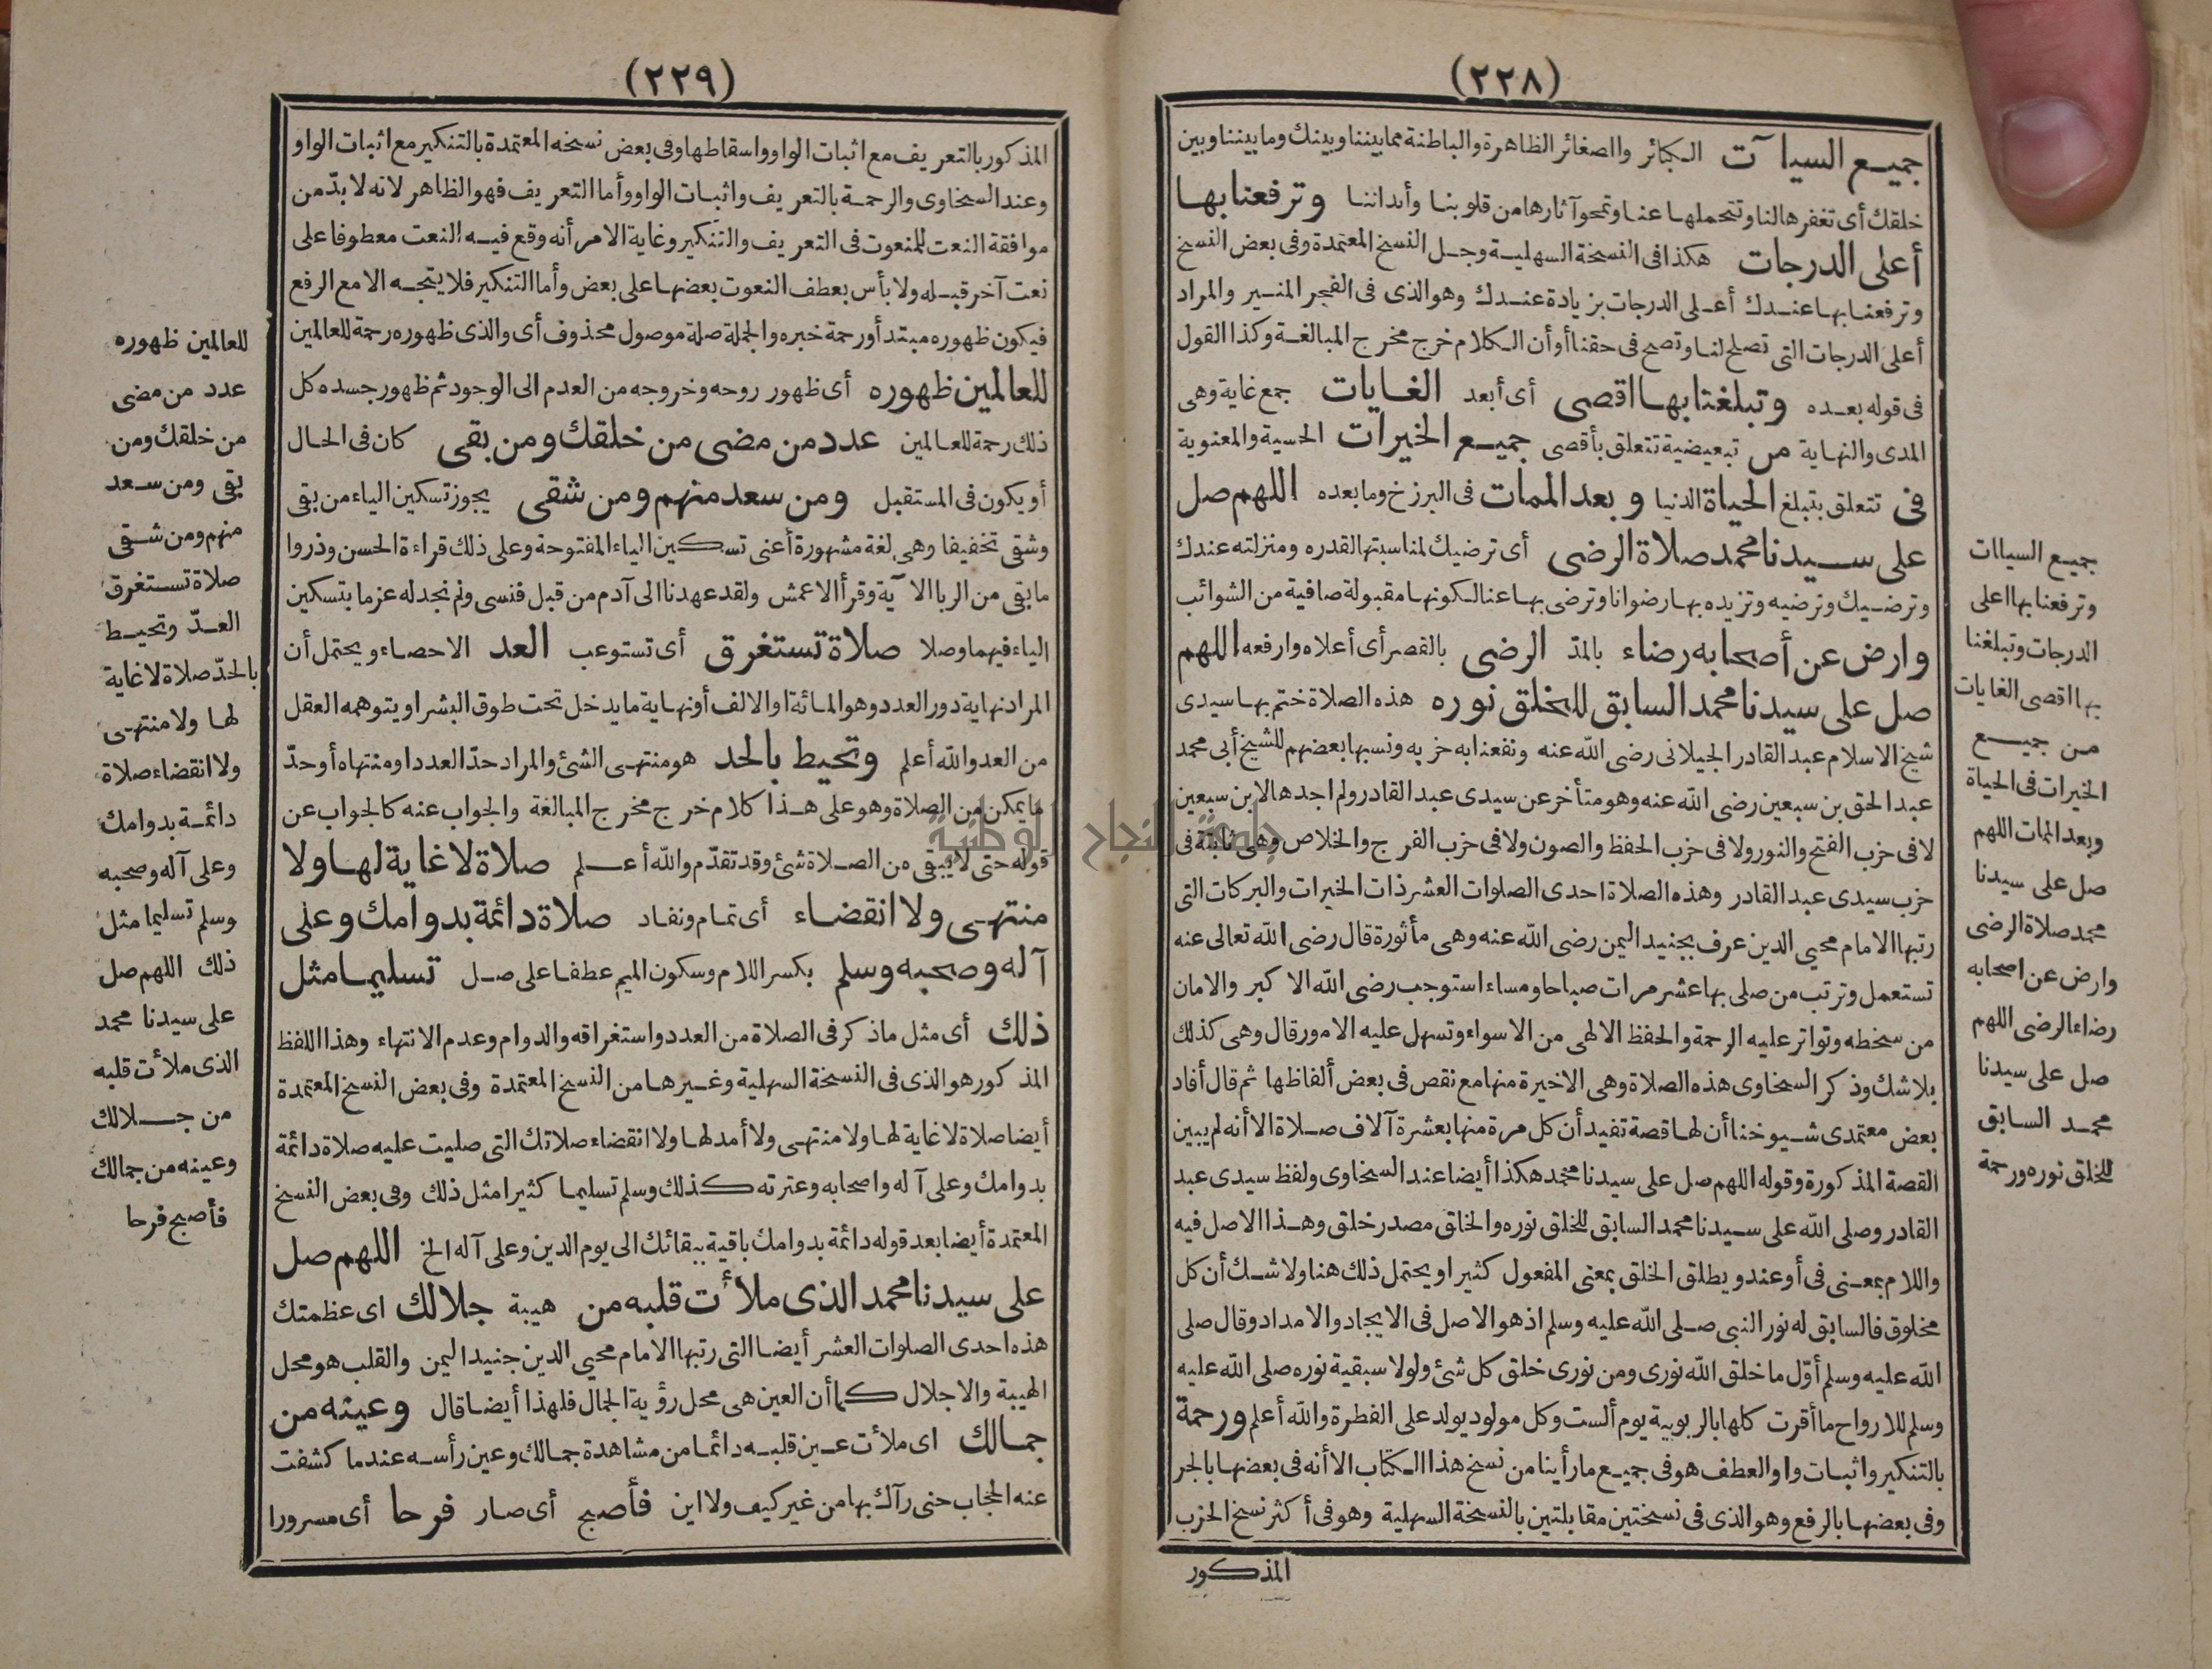 (٢٢٨)
جميع السيآت الكبائر والصغائر الظاهرة والباطنة مما بيننا وبينك وما بيننا وبين
خلقك أى تغفرها لنا وتتحملها عنا وتمحو آثارها من قلوبنا وأبداننا وترفعنا بها
أعلى الدرجات هكذا فى النسخة السهلية وجل النسخ المعتمدة وفى بعض النسخ
وترفعنا بها عندك أعلى الدرجات بزيادة عندك وهو الذى فى الفجر المنير والمراد
أعلى الدرجات التى تصلح لنا وتصح فى حقنا أو أن الكلام خرج مخرج المبالغة وكذا القول
فى قوله بعده وتبلغنا بها اقصى أى أبعد الغايات جمع غاية وهى
المدى والنهاية من تبعيضية تتعلق بأقصى جميع الخيرات الحسية والمعنوية
فى تتعلق بتبلغ الحياة الدنيا وبعد الممات فى البرزخ وما بعده اللهم صل
على سيدنا محمد صلاة الرضى أى ترضيك لمناسبتها لقدره ومنزلته عندك
وترضيك وترضيه وتزيده بها رضوانا وترضى بها عنا لكونها مقبولة صافية من الشوائب
وارض عن أصحابه رضاء بالمد الرضى بالقصر أى أعلاه وارفعه اللهم
صل على سيدنا محمد السابق للخلق نوره هذه الصلاة ختم بها سيدى
شيخ الاسلام عبد القادر الجيلانى رضى الله عنه ونفعنا به حزبه ونسبها بعضهم للشيخ أبى محمد
عبد الحق بن سبعين رضى الله عنه وهو متأخر عن سيدى عبد القادر ولم اجدها لابن سبعين
لا فى حزب الفتح والنور ولا فى حزب الحفظ والصون ولا فى حزب الفرج والخلاص وهى ثابتة فى
حزب سيدى عبد القادر وهذه الصلاة احدى الصلوات العشر ذات الخيرات والبركات التى
رتبها الامام محيي الدين عرف بجنيد اليمن رضى الله عنه وهى مأثورة قال رضى الله تعالى عنه
تستعمل وترتب من صلى بها عشر مرات صباحا ومساء استوجب رضى الله الاكبر والامان
من سخطه وتواتر عليه الرحمة والحفظ الالهى من الاسواء وتسهل عليه الامور قال وهى كذلك
بلا شك وذكر السخاوى هذه الصلاة وهى الاخيرة منها مع نقص فى بعض ألفاظها ثم قال أفاد
بعض معتمدى شيوخنا أن لها قصة تفيد أن كل مرة منها بعشرة آلاف صلاة الا أنه لم يبين
القصة المذكورة وقوله اللهم صل على سيدنا محمد هكذا أيضا عند السخاوى ولفظ سيدى عبد
القادر وصلى الله على سيدنا محمد السابق للخلق نوره والخلق مصدر خلق وهذا الاصل فيه
واللام بمعنى فى أو عند ويطلق الخلق بمعنى المفعول كثيرا ويحتمل ذلك هنا ولا شك أن كل
مخلوق فالسابق له نور النبى صلى الله عليه وسلم اذ هو الاصل فى الايجاد والامداد وقال صلى
الله عليه وسلم أوّل ما خلق الله نورى ومن نورى خلق كل شئ ولولا سبقية نوره صلى الله عليه
وسلم للارواح ما أقرت كلها بالربوبية يوم ألست وكل مولود يولد على الفطرة والله أعلم ورحمة
بالتنكير واثبات واو العطف هو فى جميع ما رأينا من نسخ هذا الكتاب الا أنه فى بعضها بالجر
وفى بعضها بالرفع وهو الذى فى نسختين مقابلتين بالنسخة السهلية وهو فى أكثر نسخ الحزب
المذكور
جميع السيات
وترفعنا بها اعلى
الدرجات وتبلغنا
بها اقصى الغايات
من جميع
الخيرات فى الحياة
وبعد الممات اللهم
صل على سيدنا
محمد صلاة الرضى
وارض عن اصحابه
رضاء الرضى اللهم
صل على سيدنا
محمد السابق
للخلق نوره ورحمة
(٢٢٩)
المذكور بالتعريف مع اثبات الواو واسقاطها وفى بعض نسخه المعتمدة بالتنكير مع اثبات الواو
وعند السخاوى والرحمة بالتعريف واثبات الواو وأما التعريف فهو الظاهر لانه لا بدّ من
موافقة النعت للمنعوت فى التعريف والتنكير وغاية الامر أنه وقع فيه النعت معطوفا على
نعت آخر قبله ولا بأس بعطف النعوت بعضها على بعض وأما التنكير فلا يتجه الا مع الرفع
فيكون ظهوره مبتدأ ورحمة خبره والجملة صلة موصول محذوف أى والذى ظهوره رحمة للعالمين
للعالمين ظهوره أى ظهور روحه وخروجه من العدم الى الوجود ثم ظهور جسده كل
ذلك رحمة للعالمين عدد من مضى من خلقك ومن بقى كان فى الحال
أو يكون فى المستقبل ومن سعد منهم ومن شقى يجوز تسكين الياء من بقى
وشقى تخفيفا وهى لغة مشهورة أعنى تسكين الياء المفتوحة وعلى ذلك قراءة الحسن وذروا
ما بقى من الربا الآية وقرأ الاعمش ولقد عهدنا الى آدم من قبل فنسى ولم نجد له عزما بتسكين
الياء فيهما وصلا صلاة تستغرق أى تستوعب العد الاحصاء ويحتمل أن
المراد نهاية دور العدد وهو المائة او الالف أو نهاية ما يدخل تحت طوق البشر او يتوهمه العقل
من العد والله أعلم وتحيط بالحد هو منتهى الشئ والمراد حدّ العدد او منتهاه أو حدّ
ما يمكن من الصلاة وهو على هذا كلام خرج مخرج المبالغة والجواب عنه كالجواب عن
قوله حتى لا يبقى من الصلاة شئ وقد تقدّم والله أعلم صلاة لا غاية لها ولا
منتهى ولا انقضاء أى تمام ونفاد صلاة دائمة بدوامك وعلى
آله وصحبه وسلم بكسر اللام وسكون الميم عطفا على صل تسليما مثل
ذلك أى مثل ما ذكر فى الصلاة من العدد واستغراقه والدوام وعدم الانتهاء وهذا اللفظ
المذكور هو الذى فى النسخة السهلية وغيرها من النسخ المعتمدة وفى بعض النسخ المعتمدة
أيضا صلاة لا غاية لها ولا منتهى ولا أمد لها ولا انقضاء صلاتك التى صليت عليه صلاة دائمة
بدوامك وعلى آله واصحابه وعترته كذلك وسلم تسليما كثيرا مثل ذلك وفى بعض النسخ
المعتمدة أيضا بعد قوله دائمة بدوامك باقية ببقائك الى يوم الدين وعلى آله الخ اللهم صل
على سيدنا محمد الذى ملأت قلبه من هيبة جلالك اى عظمتك
هذه احدى الصلوات العشر أيضا التى رتبها الامام محيي الدين جنيد اليمن والقلب هو محل
الهيبة والاجلال كما أن العين هى محل رؤية الجمال فلهذا أيضا قال وعينه من
جمالك اى ملأت عين قلبه دائما من مشاهدة جمالك وعين رأسه عندما كشفت
عنه الحجاب حتى رآك بها من غير كيف ولا اين فأصبح أى صار فرحا أى مسرورا
للعالمين ظهوره
عدد من مضى
من خلقك ومن
بقى ومن سعد
منهم ومن شقى
صلاة تستغرق
العدّ وتحيط
بالحدّ صلاة لا غاية
لها ولا منتهى
ولا انقضاء صلاة
دائمة بدوامك
وعلى آله وصحبه
وسلم تسليما مثل
ذلك اللهم صل
على سيدنا محمد
الذى ملأت قلبه
من جلالك
وعينه من جمالك
فأصبح فرحا
جامعة النجاح الوطنية